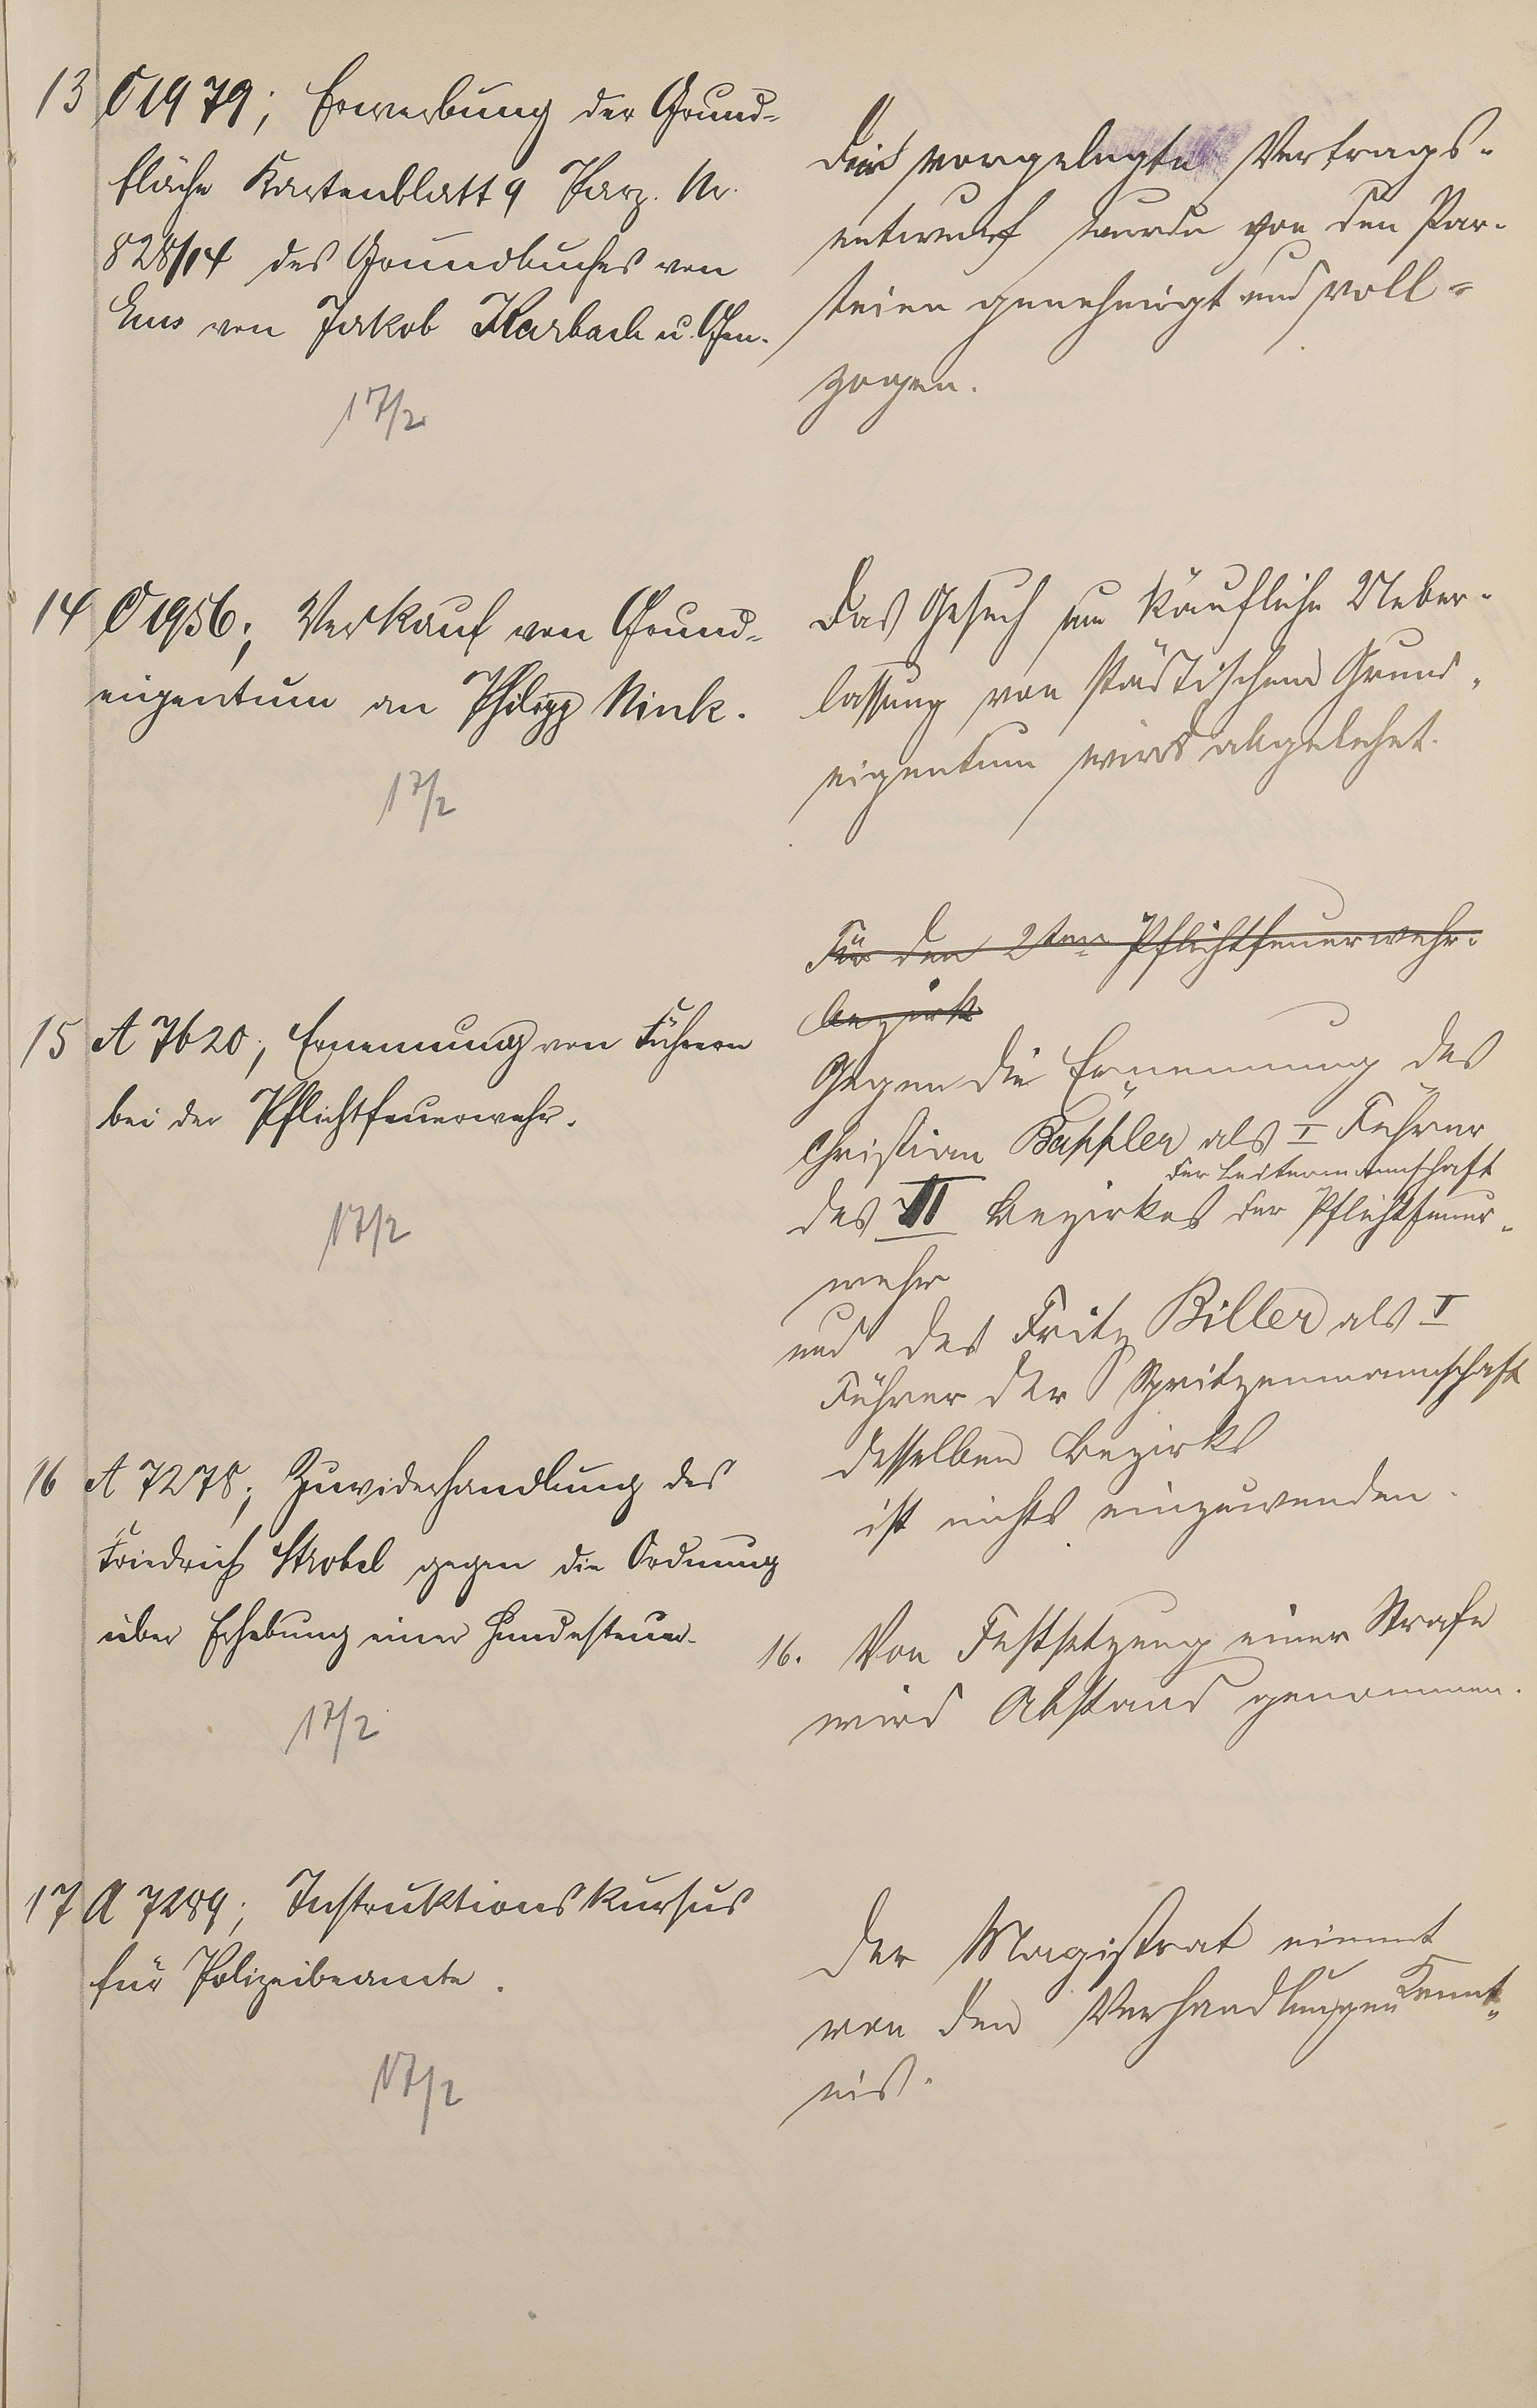 13 C 1979; Erwerbung der Grund-
fläche Kartenblatt 9 Parz. Nr.
828/14 des Grundbuches von
Ems von Jakob Karbach u. Gen.
17/2
vorgelegte Vertrags-
entwurf wurde von den Par-
teien genehmigt und voll-
zogen.
14 C 1956; Verkauf von Grund-
eigentum an Philipp Nink.
17/2
Das Gesuch um käufliche Ueber-
lassung von städtischem Grund-
eigentum wird abgelehnt.
Für den 2ten Pflichtfeuerwehr-
bezirk
15 A 7620; Ernennung von Führern
bei der Pflichtfeuerwehr.
17/2
Gegen die Ernennung des
Christian Bäppler als I Führer
der Leitermannschaft
des II Bezirkes der Pflichtfeuer-
wehr
und des Fritz Biller als I
Führer der Spritzenmannschaft
desselben Bezirks
ist nichts einzuwenden.
16 A 7278; Zuwiderhandlung des
Friedrich Strobel gegen die Ordnung
über Erhebung einer Hundesteuer.
17/2
16. Von Festsetzung einer Strafe
wird Abstand genommen.
17 A 7289; Instruktionskursus
für Polizeibeamte.
17/2
Der Magistrat nimmt
von den Verhandlungen Kennt-
nis.